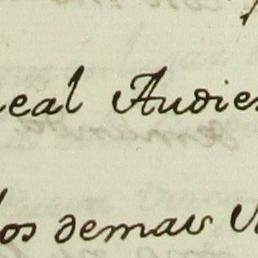 eal Audie
los demas